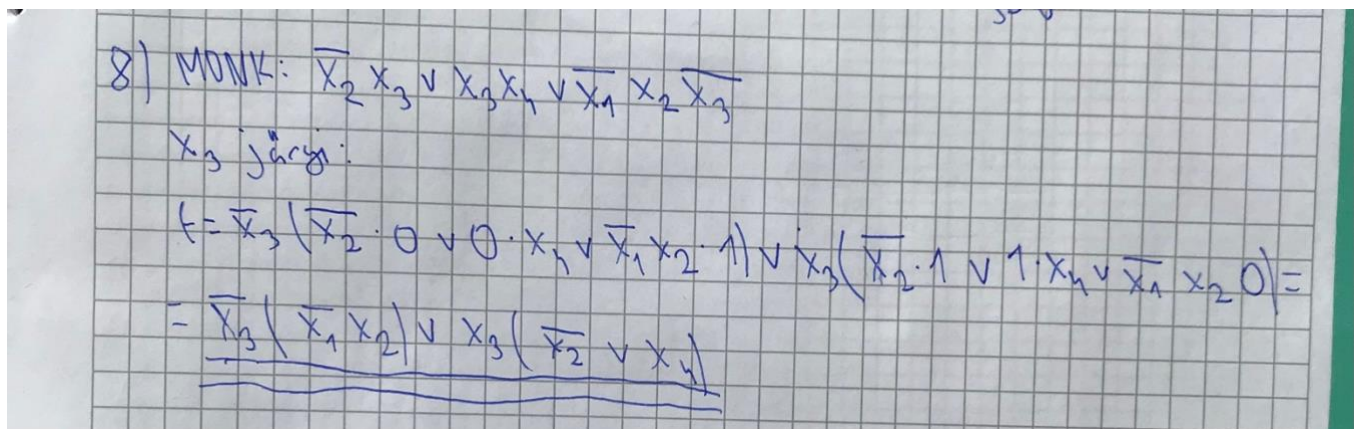 8) MDNK: x̅₂ x₃ ∨ x₃x₄ ∨ x̅₁ x₂ x̅₃
x₃ järgi:
f = x̅₃ ( x̅₂ · 0 ∨ 0 · x₄ ∨ x̅₁ x₂ · 1 ) ∨ x₃ ( x̅₂ · 1 ∨ 1 · x₄ ∨ x̅₁ x₂ 0 ) =
= x̅₃ ( x̅₁ x₂ ) ∨ x₃ ( x̅₂ ∨ x₄ )